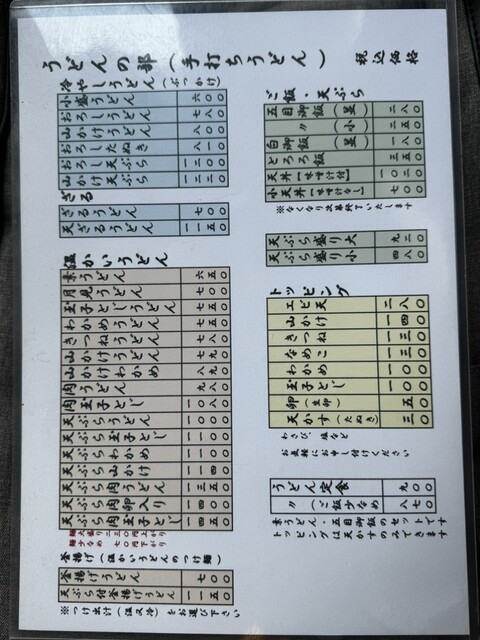 うどんの部(手打ちうどん)
税込価格
冷やしうどん(ぶっかけ)
小盛うどん 六〇〇
おろしうどん 七八〇
山かけうどん 八〇〇
おろしたぬき 八一〇
おろし天ぷら 一二〇〇
山かけ天ぷら 一二二〇
ざる
ざるうどん 七〇〇
天ざるうどん 一一五〇
温かいうどん
素うどん 六五〇
月見うどん 七〇〇
玉子とじうどん 七五〇
わかめうどん 七五〇
きつねうどん 七八〇
山かけうどん 七九〇
山かけわかめ 八九〇
肉うどん 九八〇
肉玉子とじ 一〇八〇
天ぷらうどん 一〇〇〇
天ぷら玉子とじ 一一〇〇
天ぷらわかめ 一一〇〇
天ぷら山かけ 一一四〇
天ぷら肉うどん 一三五〇
天ぷら肉卵入り 一四〇〇
天ぷら肉玉子とじ 一四五〇
麺大盛り二三〇円上がり
麺少なめ 七〇円下がり
釜揚げ(温かいうどんのつけ麺)
釜揚げうどん 七〇〇
天ぷら付釜揚げうどん 一一五〇
※つけ出汁(温又冷)をお選び下さい
ご飯・天ぷら
五目御飯(並) 二八〇
〃(小) 二五〇
白御飯(並) 一八〇
とろろ飯 三五〇
天丼【味噌汁付】 一〇二〇
小天丼【味噌汁なし】 七〇〇
※なくなり次第終了いたします
天ぷら盛り大 九二〇
天ぷら盛り小 四八〇
トッピング
エビ天 二八〇
山かけ 一四〇
きつね 一三〇
なめこ 一三〇
わかめ 一〇〇
玉子とじ 一〇〇
卵(生卵) 五〇
天かす(たぬき) 三〇
わさび、塩など
お気軽にお申し付けください
うどん定食 九〇〇
〃(ご飯少なめ) 八七〇
素うどん・五目御飯のセットです
トッピングは天かすのみつきます